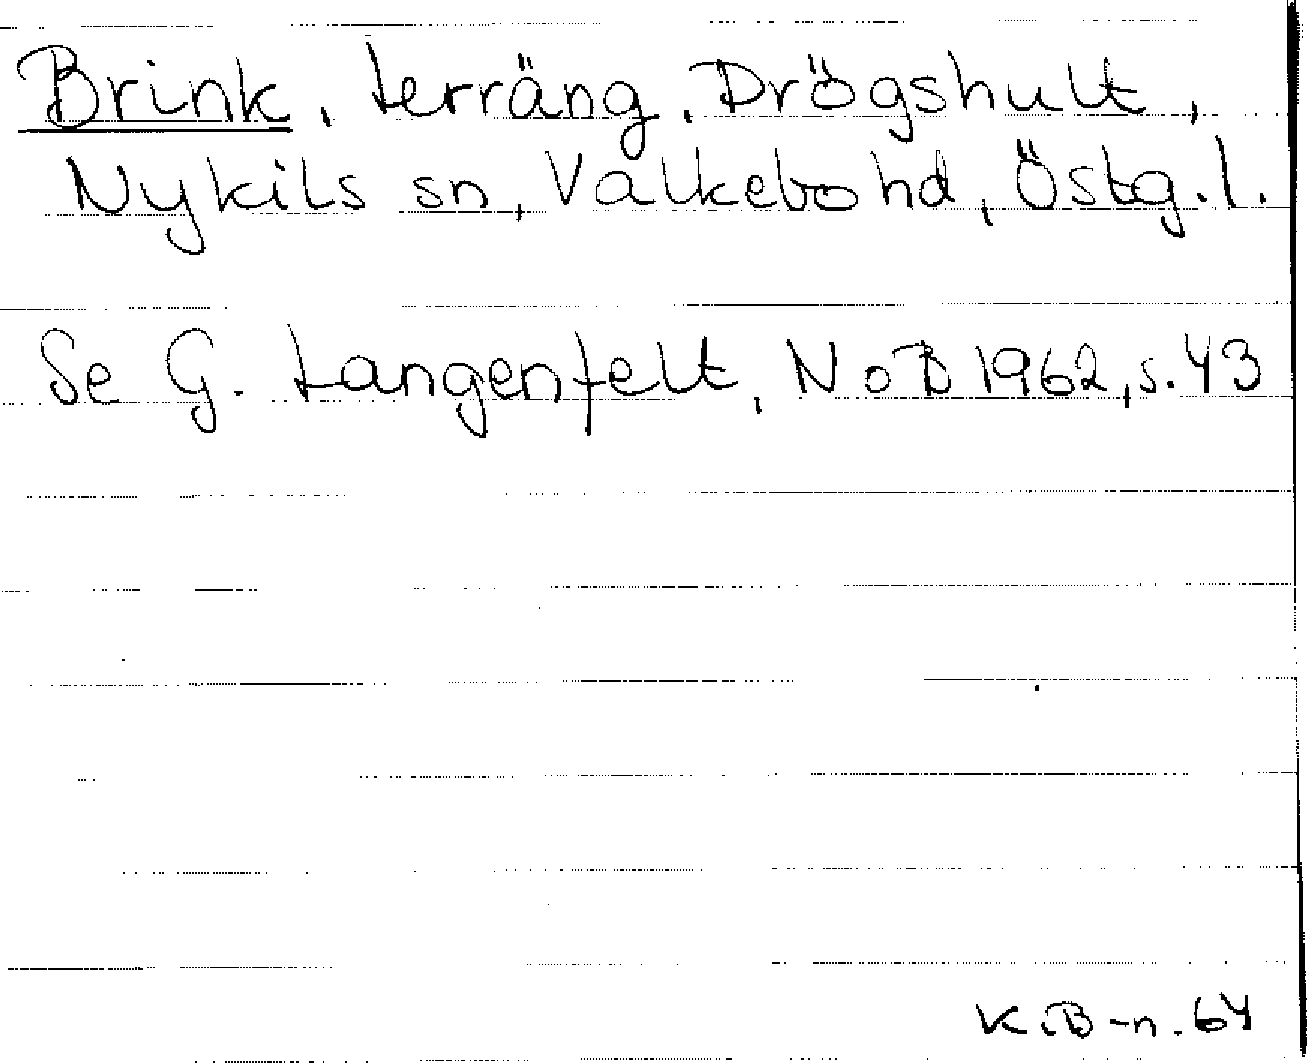 Brink, terräng, Drögshult,
Nykils sn, Valkebo hd, Östg.l.
Se G. Langenfelt, NoB 1962, s. 43
K.B-n. 64